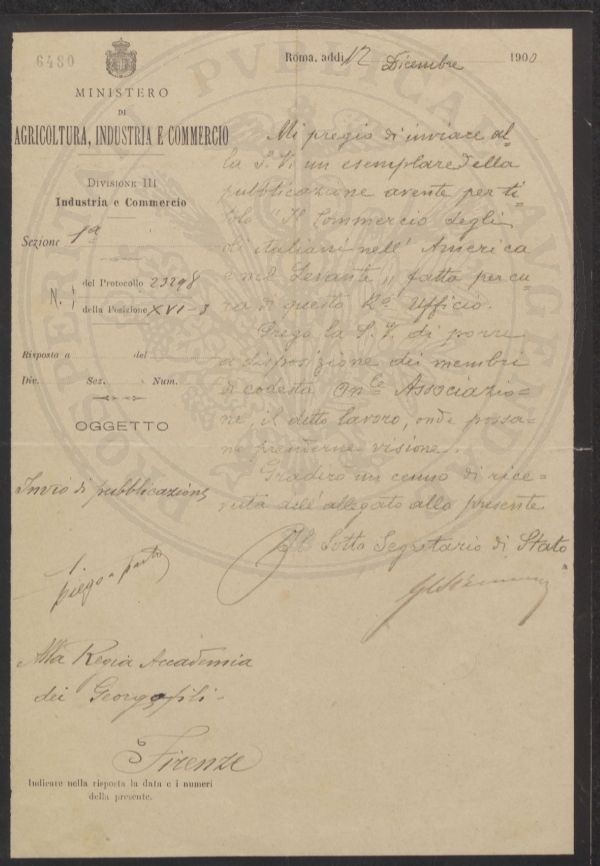 6480
Roma, addì 12 Dicembre 1900
MINISTERO
DI
AGRICOLTURA, INDUSTRIA E COMMERCIO
DIVISIONE III
Industria e Commercio
Sezione 1ª
N.
del Protocollo 23298
della Posizione XVI-3
Risposta a del
Div. Sez. Num.
OGGETTO
Invio di pubblicazione
1 piego a parte
Mi pregio di inviare al=
la S. V. un esemplare della
pubblicazione avente per ti=
tolo "Il Commercio degli
oli italiani nell' America
e nel Levante" fatta per cu=
ra di questo Rº Ufficio.
Prego la S. V. di porre
a disposizione dei membri
di codesta On.le Associazio=
ne, il detto lavoro, onde possa=
no prenderne visione.
Gradirò un cenno di rice=
vuta dell'allegato alla presente
Il Sotto Segretario di Stato
Alla Regia Accademia
dei Georgofili
Firenze
Indicare nella risposta la data e i numeri
della presente.